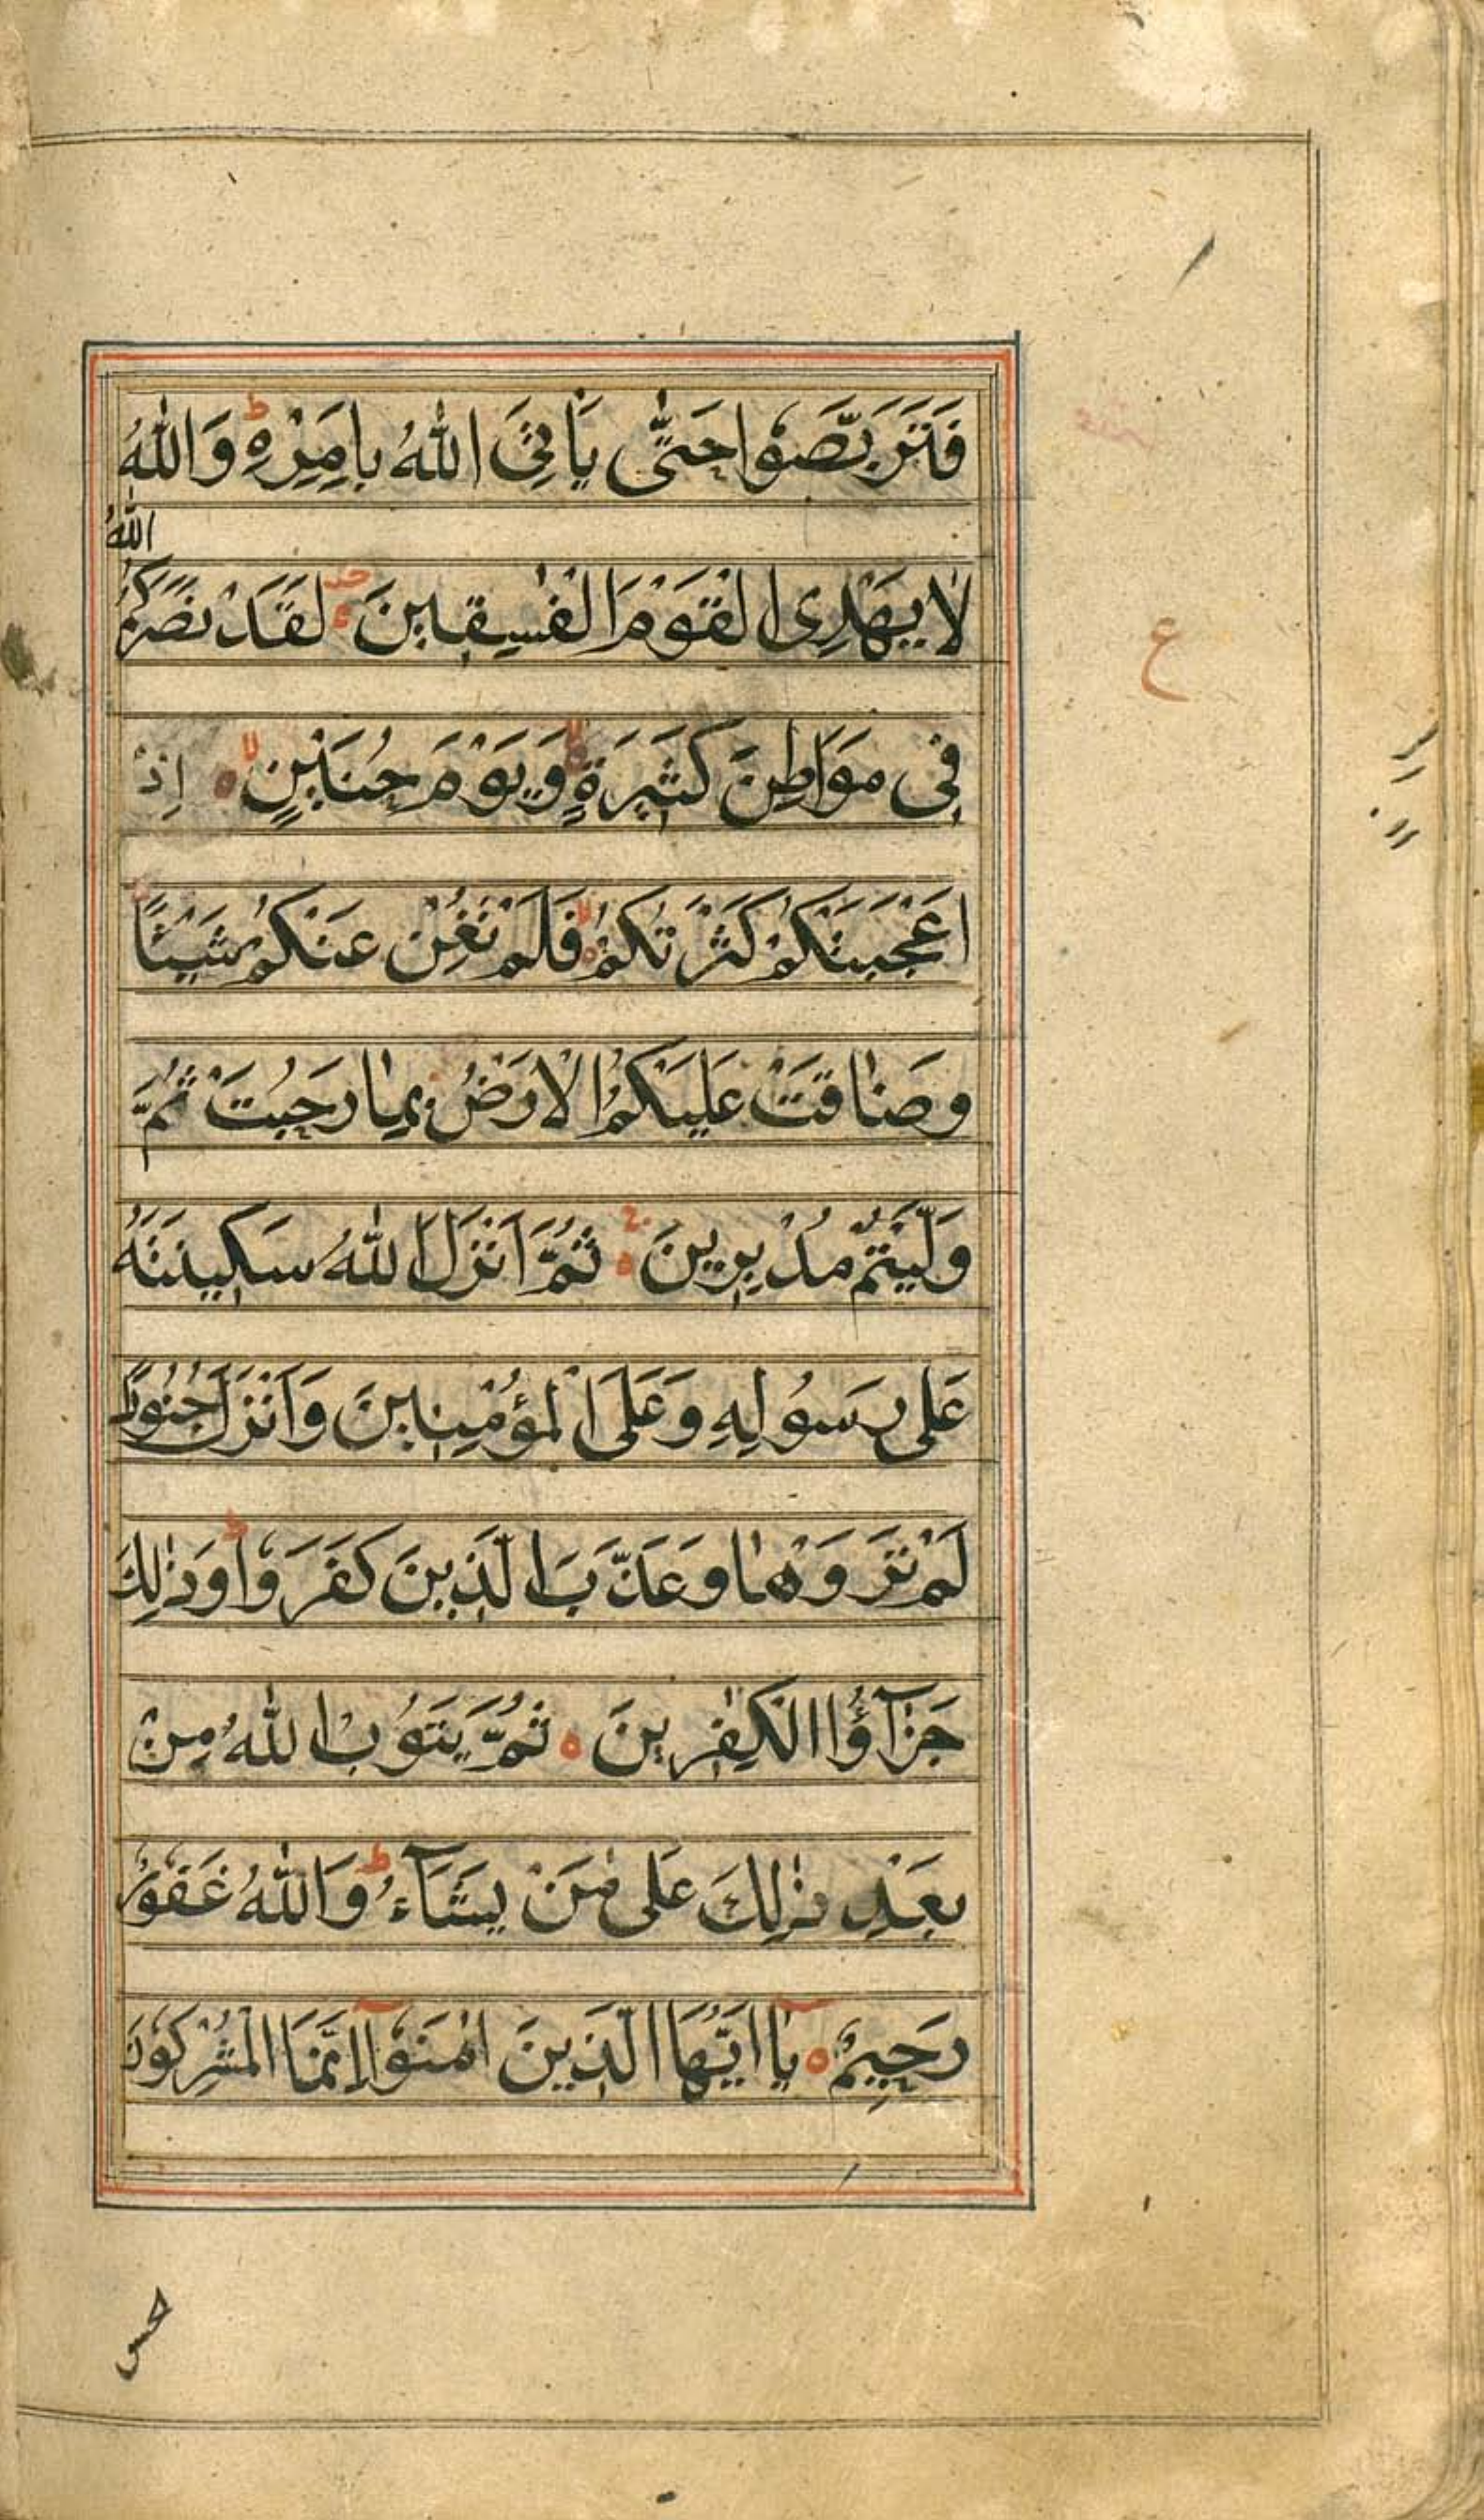 فَتَرَبَّصُوْا حَتّٰى يَاْتِىَ اللّٰهُ بِاَمْرِهٖ ؕ وَاللّٰهُ
لَا يَهْدِى الْقَوْمَ الْفٰسِقِيْنَ لَقَدْ نَصَرَكُمُ اللّٰهُ
فِىْ مَوَاطِنَ كَثِيْرَةٍ وَّيَوْمَ حُنَيْنٍ ۙ اِذْ
اَعْجَبَتْكُمْ كَثْرَتُكُمْ فَلَمْ تُغْنِ عَنْكُمْ شَيْئًا
وَضَاقَتْ عَلَيْكُمُ الْاَرْضُ بِمَا رَحُبَتْ ثُمَّ
وَلَّيْتُمْ مُدْبِرِيْنَ ثُمَّ اَنْزَلَ اللّٰهُ سَكِيْنَتَهُ
عَلٰى رَسُوْلِهٖ وَعَلَى الْمُؤْمِنِيْنَ وَاَنْزَلَ جُنُوْدًا
لَمْ تَرَوْهَا وَعَذَّبَ الَّذِيْنَ كَفَرُوْا ؕ وَذٰلِكَ
جَزَآؤُا الْكٰفِرِيْنَ ثُمَّ يَتُوْبُ اللّٰهُ مِنْ
بَعْدِ ذٰلِكَ عَلٰى مَنْ يَشَآءُ ؕ وَاللّٰهُ غَفُوْرٌ
رَحِيْمٌ يٰۤا اَيُّهَا الَّذِيْنَ اٰمَنُوْۤا اِنَّمَا الْمُشْرِكُوْنَ
ع